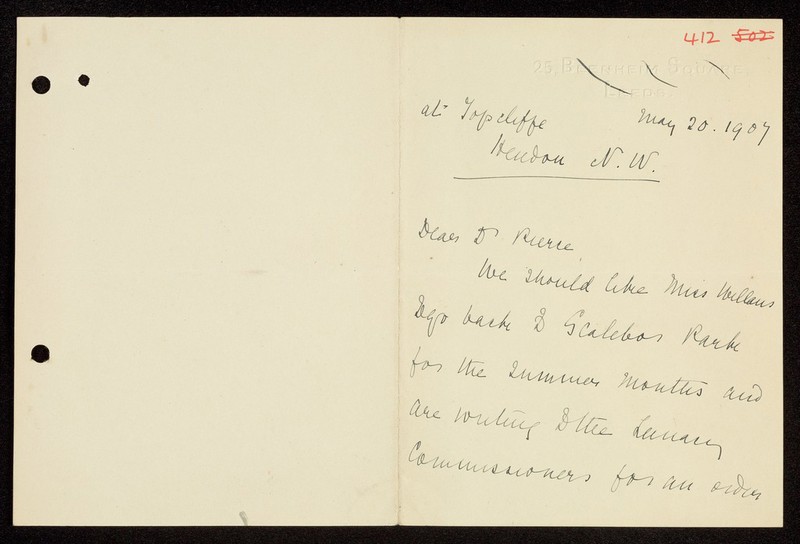 412 502
25, Blenheim Square,
Leeds.
at Topcliffe May 20. 1907
Hendon N. W.
Dear Dr Pierce
We should like Miss Willans
to go back to Scalebor Park
for the summer months and
are writing to the Lunacy
Commissioners for an order